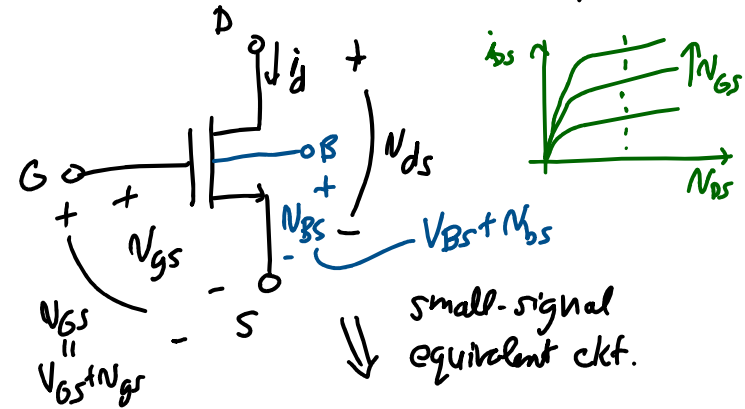 D
i_d
+
G
+
+
v_gs
-
-
S
v_GS
=
V_GS + v_gs
B
+
v_BS
-
V_BS + v_bs
v_ds
-
i_DS
v_GS
v_DS
small-signal
equivalent ckt.